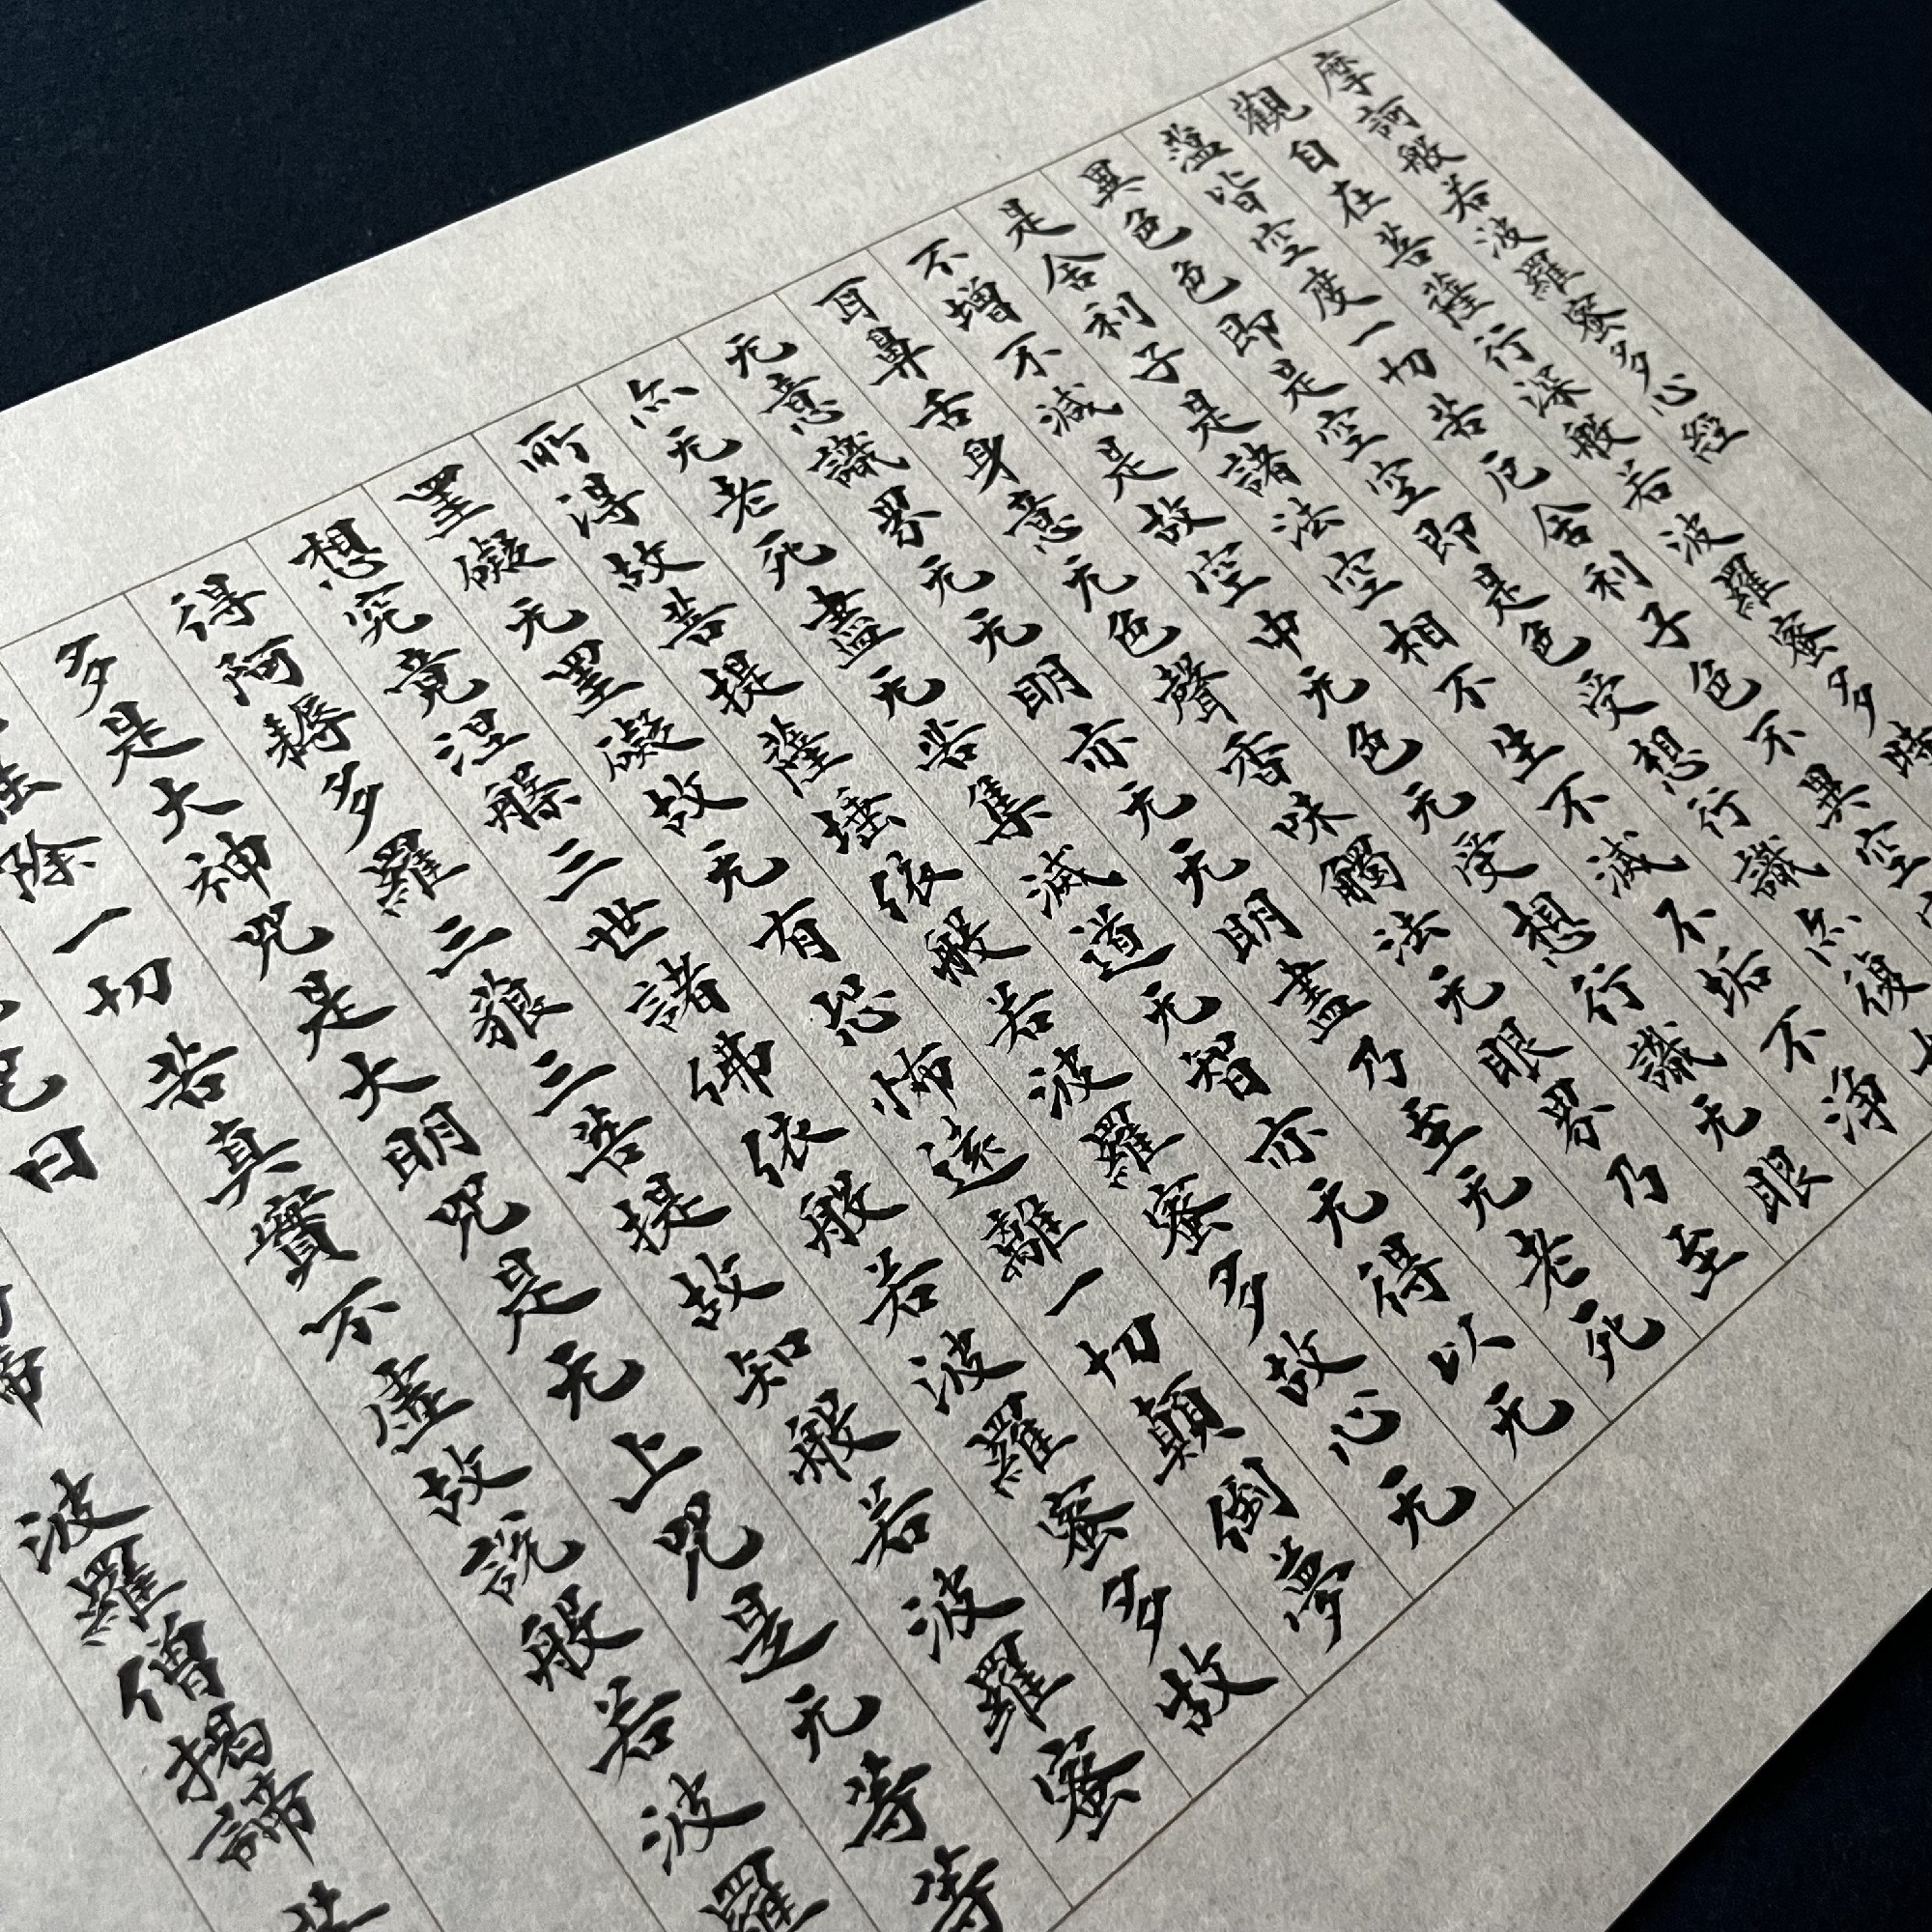 摩訶般若波羅蜜多心經
觀自在菩薩行深般若波羅蜜多時
蘊皆空度一切苦厄舍利子色不異空
異色色即是空空即是色受想行識亦復
是舍利子是諸法空相不生不滅不垢不淨
不增不減是故空中无色无受想行識无眼
耳鼻舌身意无色聲香味觸法无眼界乃至
无意識界无无明亦无无明盡乃至无老死
亦无老死盡无苦集滅道无智亦无得以无
所得故菩提薩埵依般若波羅蜜多故心无
罣礙无罣礙故无有恐怖遠離一切顛倒夢
想究竟涅槃三世諸佛依般若波羅蜜多故
得阿耨多羅三藐三菩提故知般若波羅蜜
多是大神咒是大明咒是无上咒是无等等
能除一切苦真實不虛故說般若波羅
咒曰
諦 波羅僧揭諦